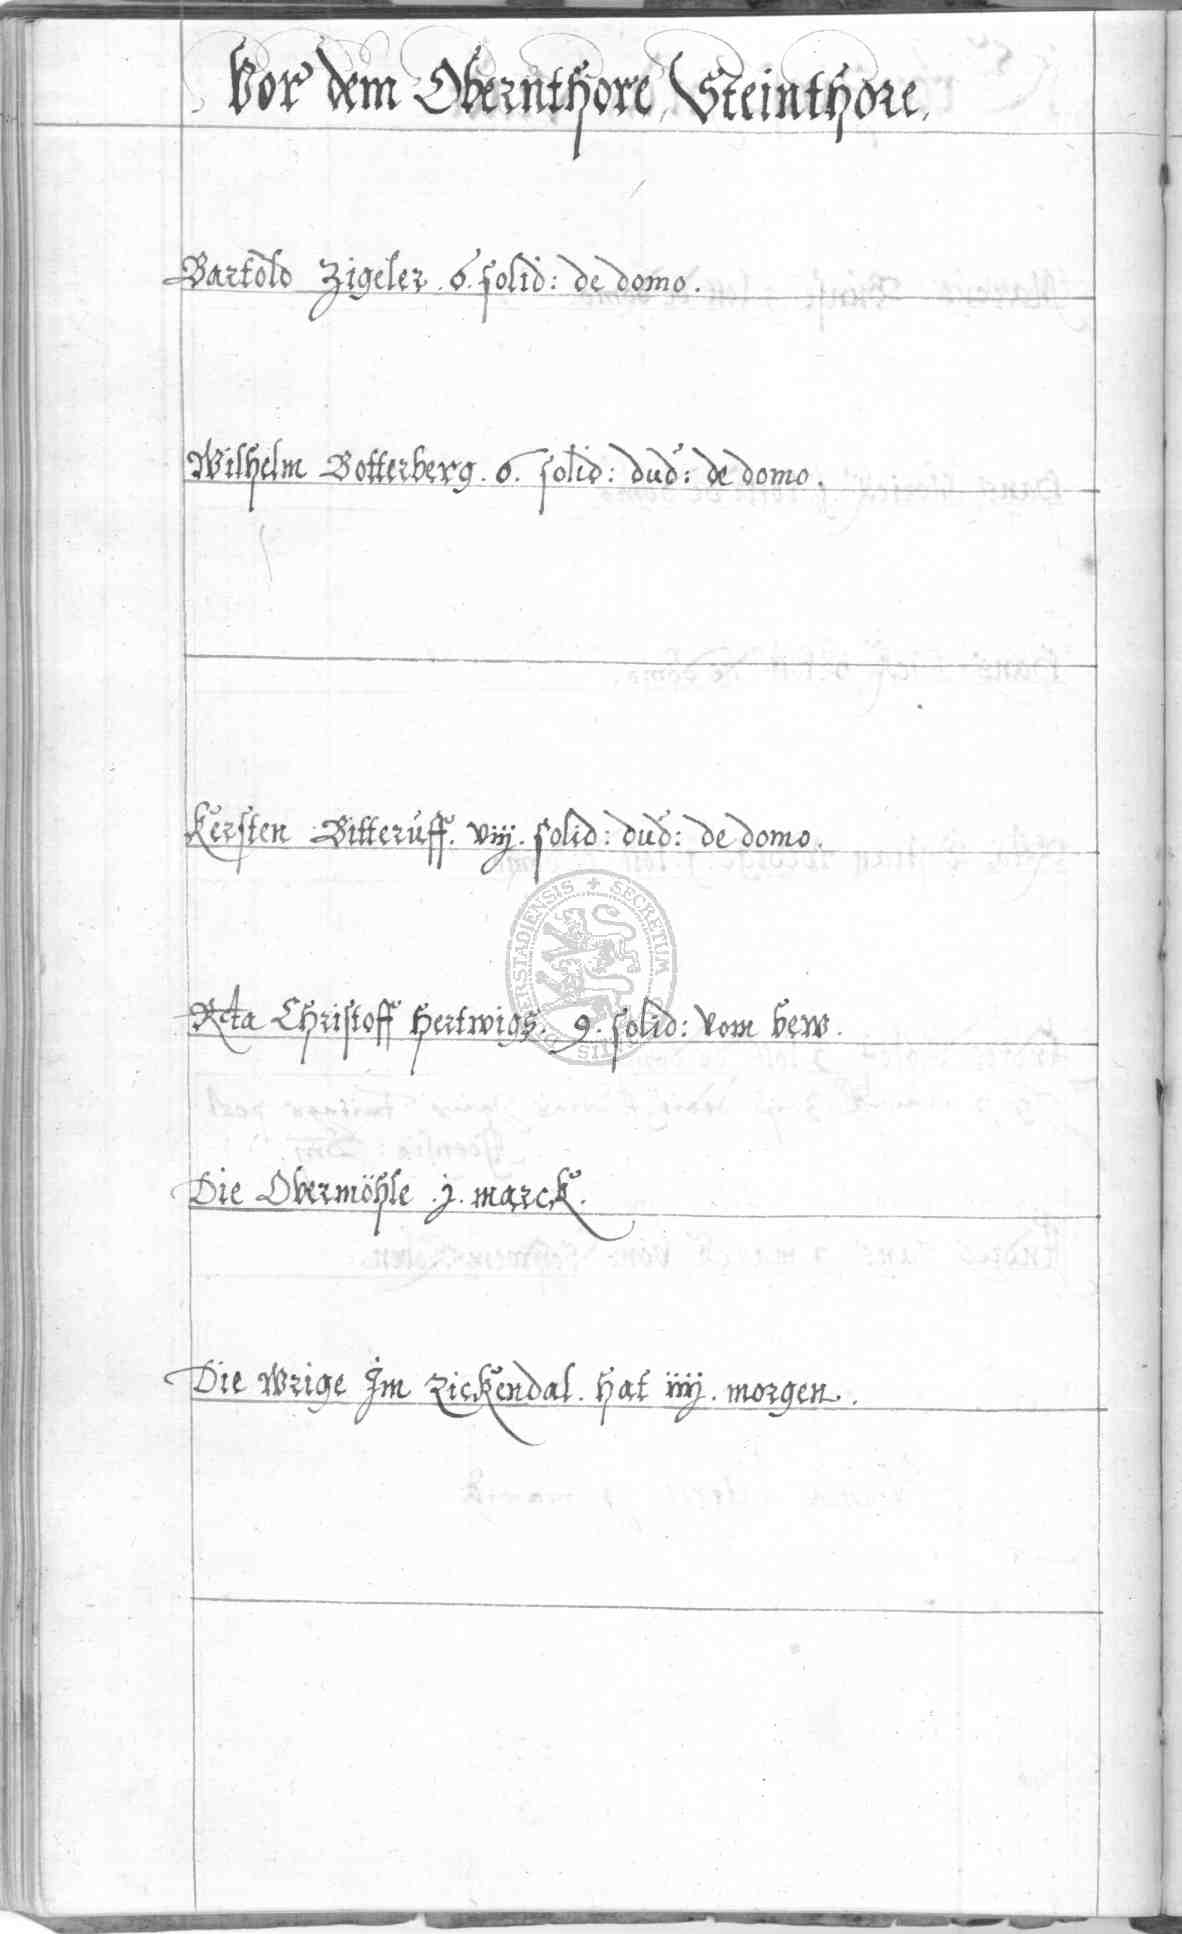 Vor dem Obernthore, Steinthore,
Bartold Zigeler. 6. solid: de domo.
Wilhelm Botterberg. 6. solid: dud: de domo.
Kersten Bitteruff. viij. solid: dud: de domo.
Rcta Christoff Hertwigs. 9. solid: vom hew.
SECRETUM
Die Obermöhle .j. marck.
Die Wrige Jm Rickendal. hat iiij. morgen.